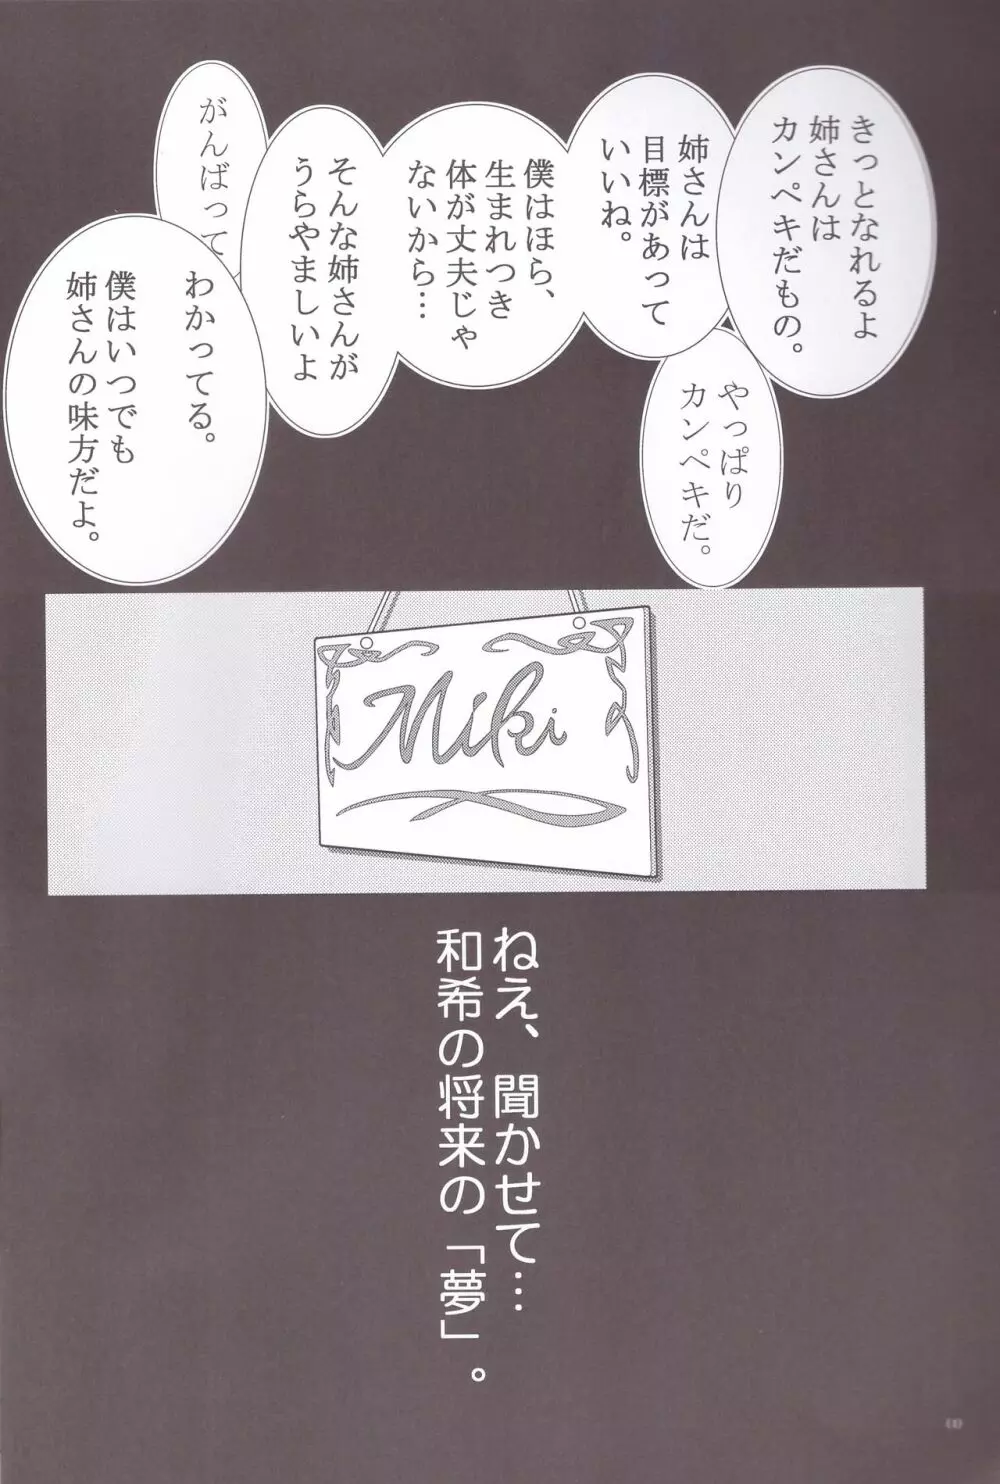 きっとなれるよ
姉さんは
カンペキだもの。
やっぱり
カンペキだ。
姉さんは
目標があって
いいね。
僕はほら、
生まれつき
体が丈夫じゃ
ないから…
そんな姉さんが
うらやましいよ
がんばって
わかってる。
僕はいつでも
姉さんの味方だよ。
Miki
ねえ、聞かせて…
和希の将来の「夢」。